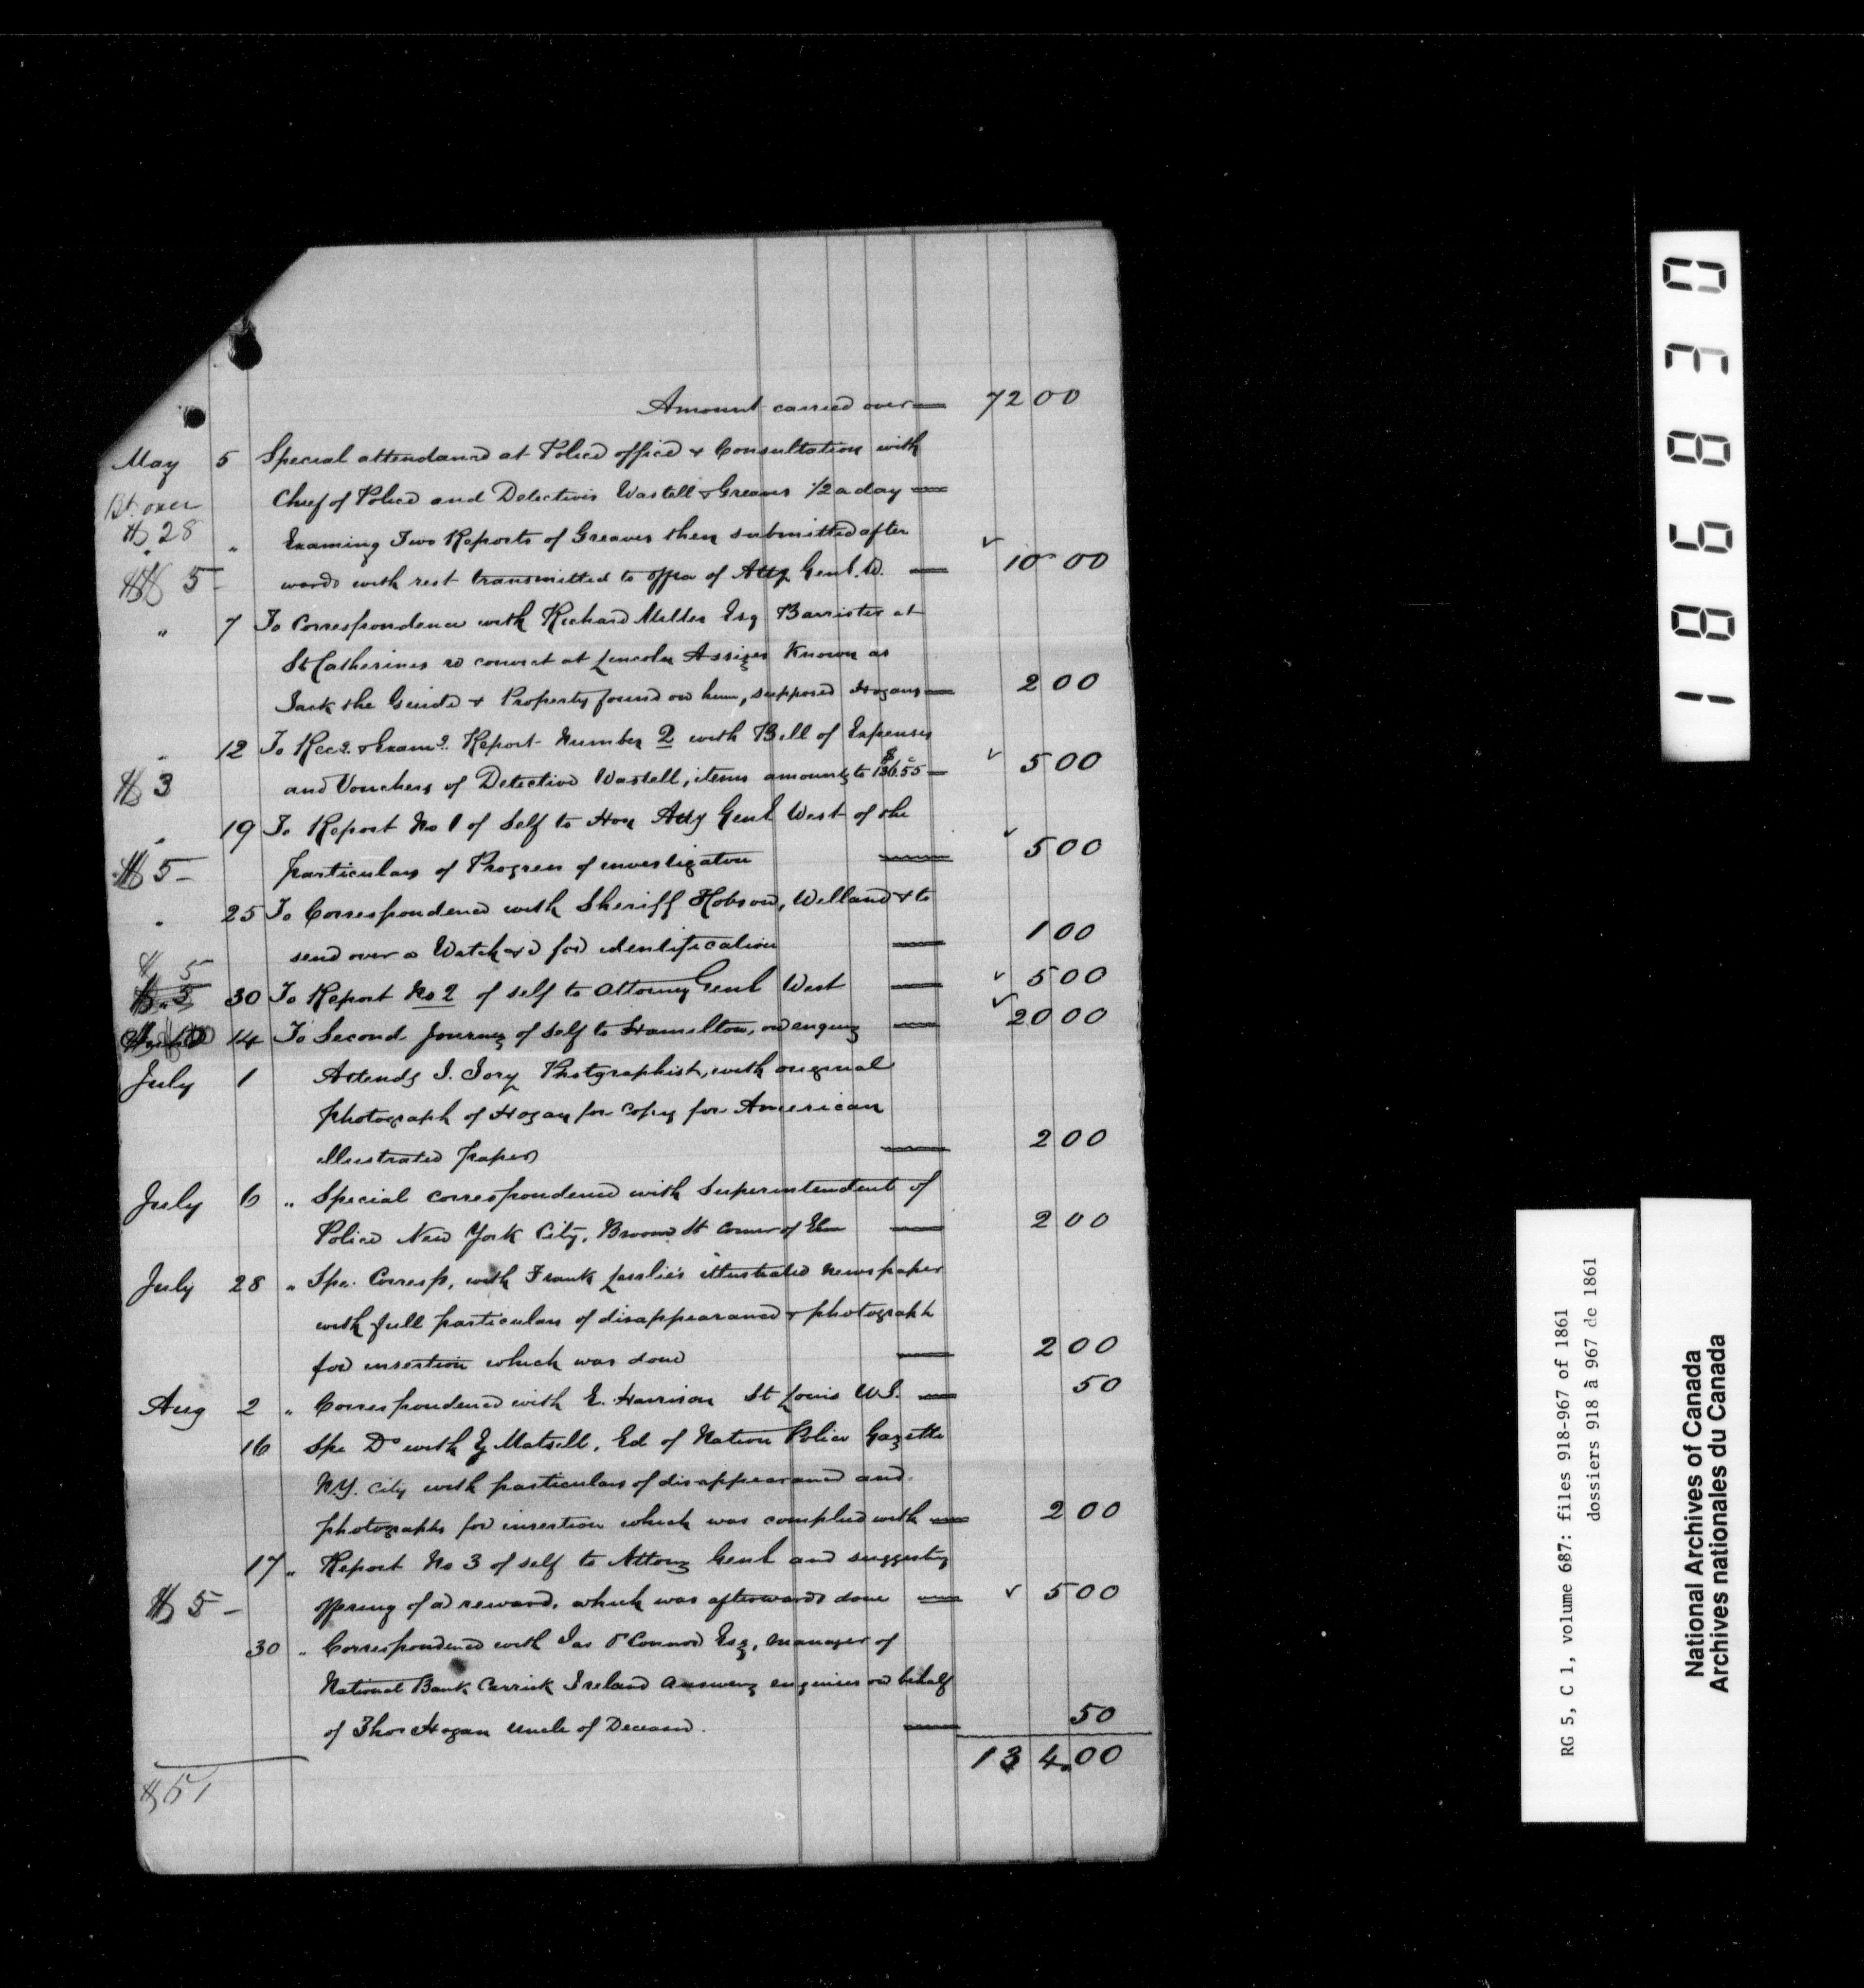 Amount carried over 72 00
May 5 Special attendance at Police office & Consultation with
Bt. over Chief of Police and Detectives Wastell & Greaves 1/2 a day
$28 " Examing Two Reports of Greaves then submitted after
$5- wards with rest transmitted to offce of Atty Genl. W. ✓ 10 00
" 7 To Correspondence with Richard Miller Esq Barrister at
St Catherines re convict at Lincoln Assizes Known as
Jack the Guide & Property found on him, supposed Hogans 2 00
" 12 To Recg. & Examg. Report Number 2 with Bill of Expenses
$3 and Vouchers of Detective Wastell, items amountg to $136.55 ✓ 5 00
" 19 To Report No 1 of Self to Hon Atty Genl West of the
$5- particulars of Progress of investigation ✓ 5 00
" 25 To Correspondence with Sheriff Hobson, Welland & to
send over a Watch &c for identification 1 00
$5 30 To Report No 2 of self to Attorney Genl West ✓ 5 00
14 To Second Journey of Self to Hamilton, on enquiry ✓ 20 00
July 1 Attendg J. Jory Photgraphist, with original
photograph of Hogan for copy for American
illustrated paper 2 00
July 6 " Special correspondence with Superintendent of
Police New York City, Broome St corner of Elm 2 00
July 28 " Spe. Corresp, with Frank Leslie's illustrated newspaper
with full particulars of disappearance & photograph
for insertion which was done 2 00
Aug 2 " Correspondence with E. Harrison St Louis U.S. 50
16 Spe Do with G Matsell, Ed of Nation Police Gazette
N.Y. City with particulars of disappearance and
photographs for insertion which was complied with 2 00
17 " Report No 3 of self to Attorny Genl and suggesting
$5- offering of a reward, which was afterwards done ✓ 5 00
30 " Correspondence with Jas O'Connor Esq, manager of
National Bank Carrick Ireland answerg enquiries on behalf
of Thos Hogan uncle of Deceased. 50
134.00
$51
186830
RG 5, C 1, volume 687: files 918-967 of 1861
dossiers 918 à 967 de 1861
National Archives of Canada
Archives nationales du Canada